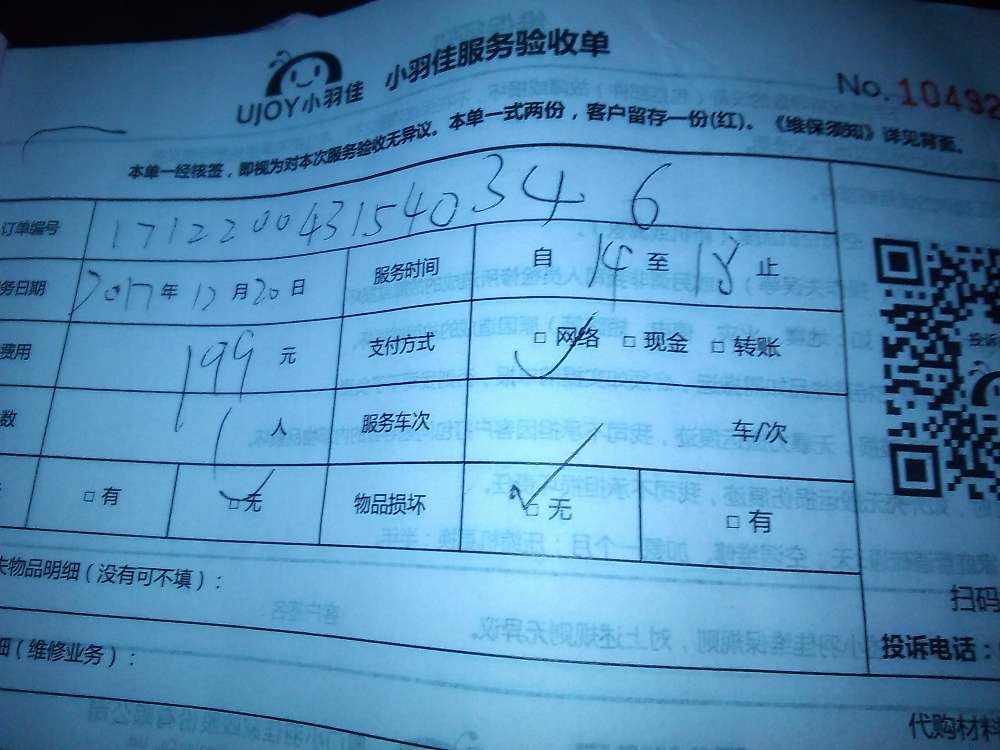 UJOY小羽佳 小羽佳服务验收单
No. 10492
本单一经核签，即视为对本次服务验收无异议。本单一式两份，客户留存一份(红)。《维保须知》详见背面。
订单编号 1712200431540346
务日期 2017年12月20日 服务时间 自 14 至 18 止
费用 199 元 支付方式 □网络 □现金 □转账
数 1 人 服务车次 车/次
□有 □无 物品损坏 □无 □有
失物品明细（没有可不填）：
细（维修业务）：
扫码
投诉电话：
代购材料